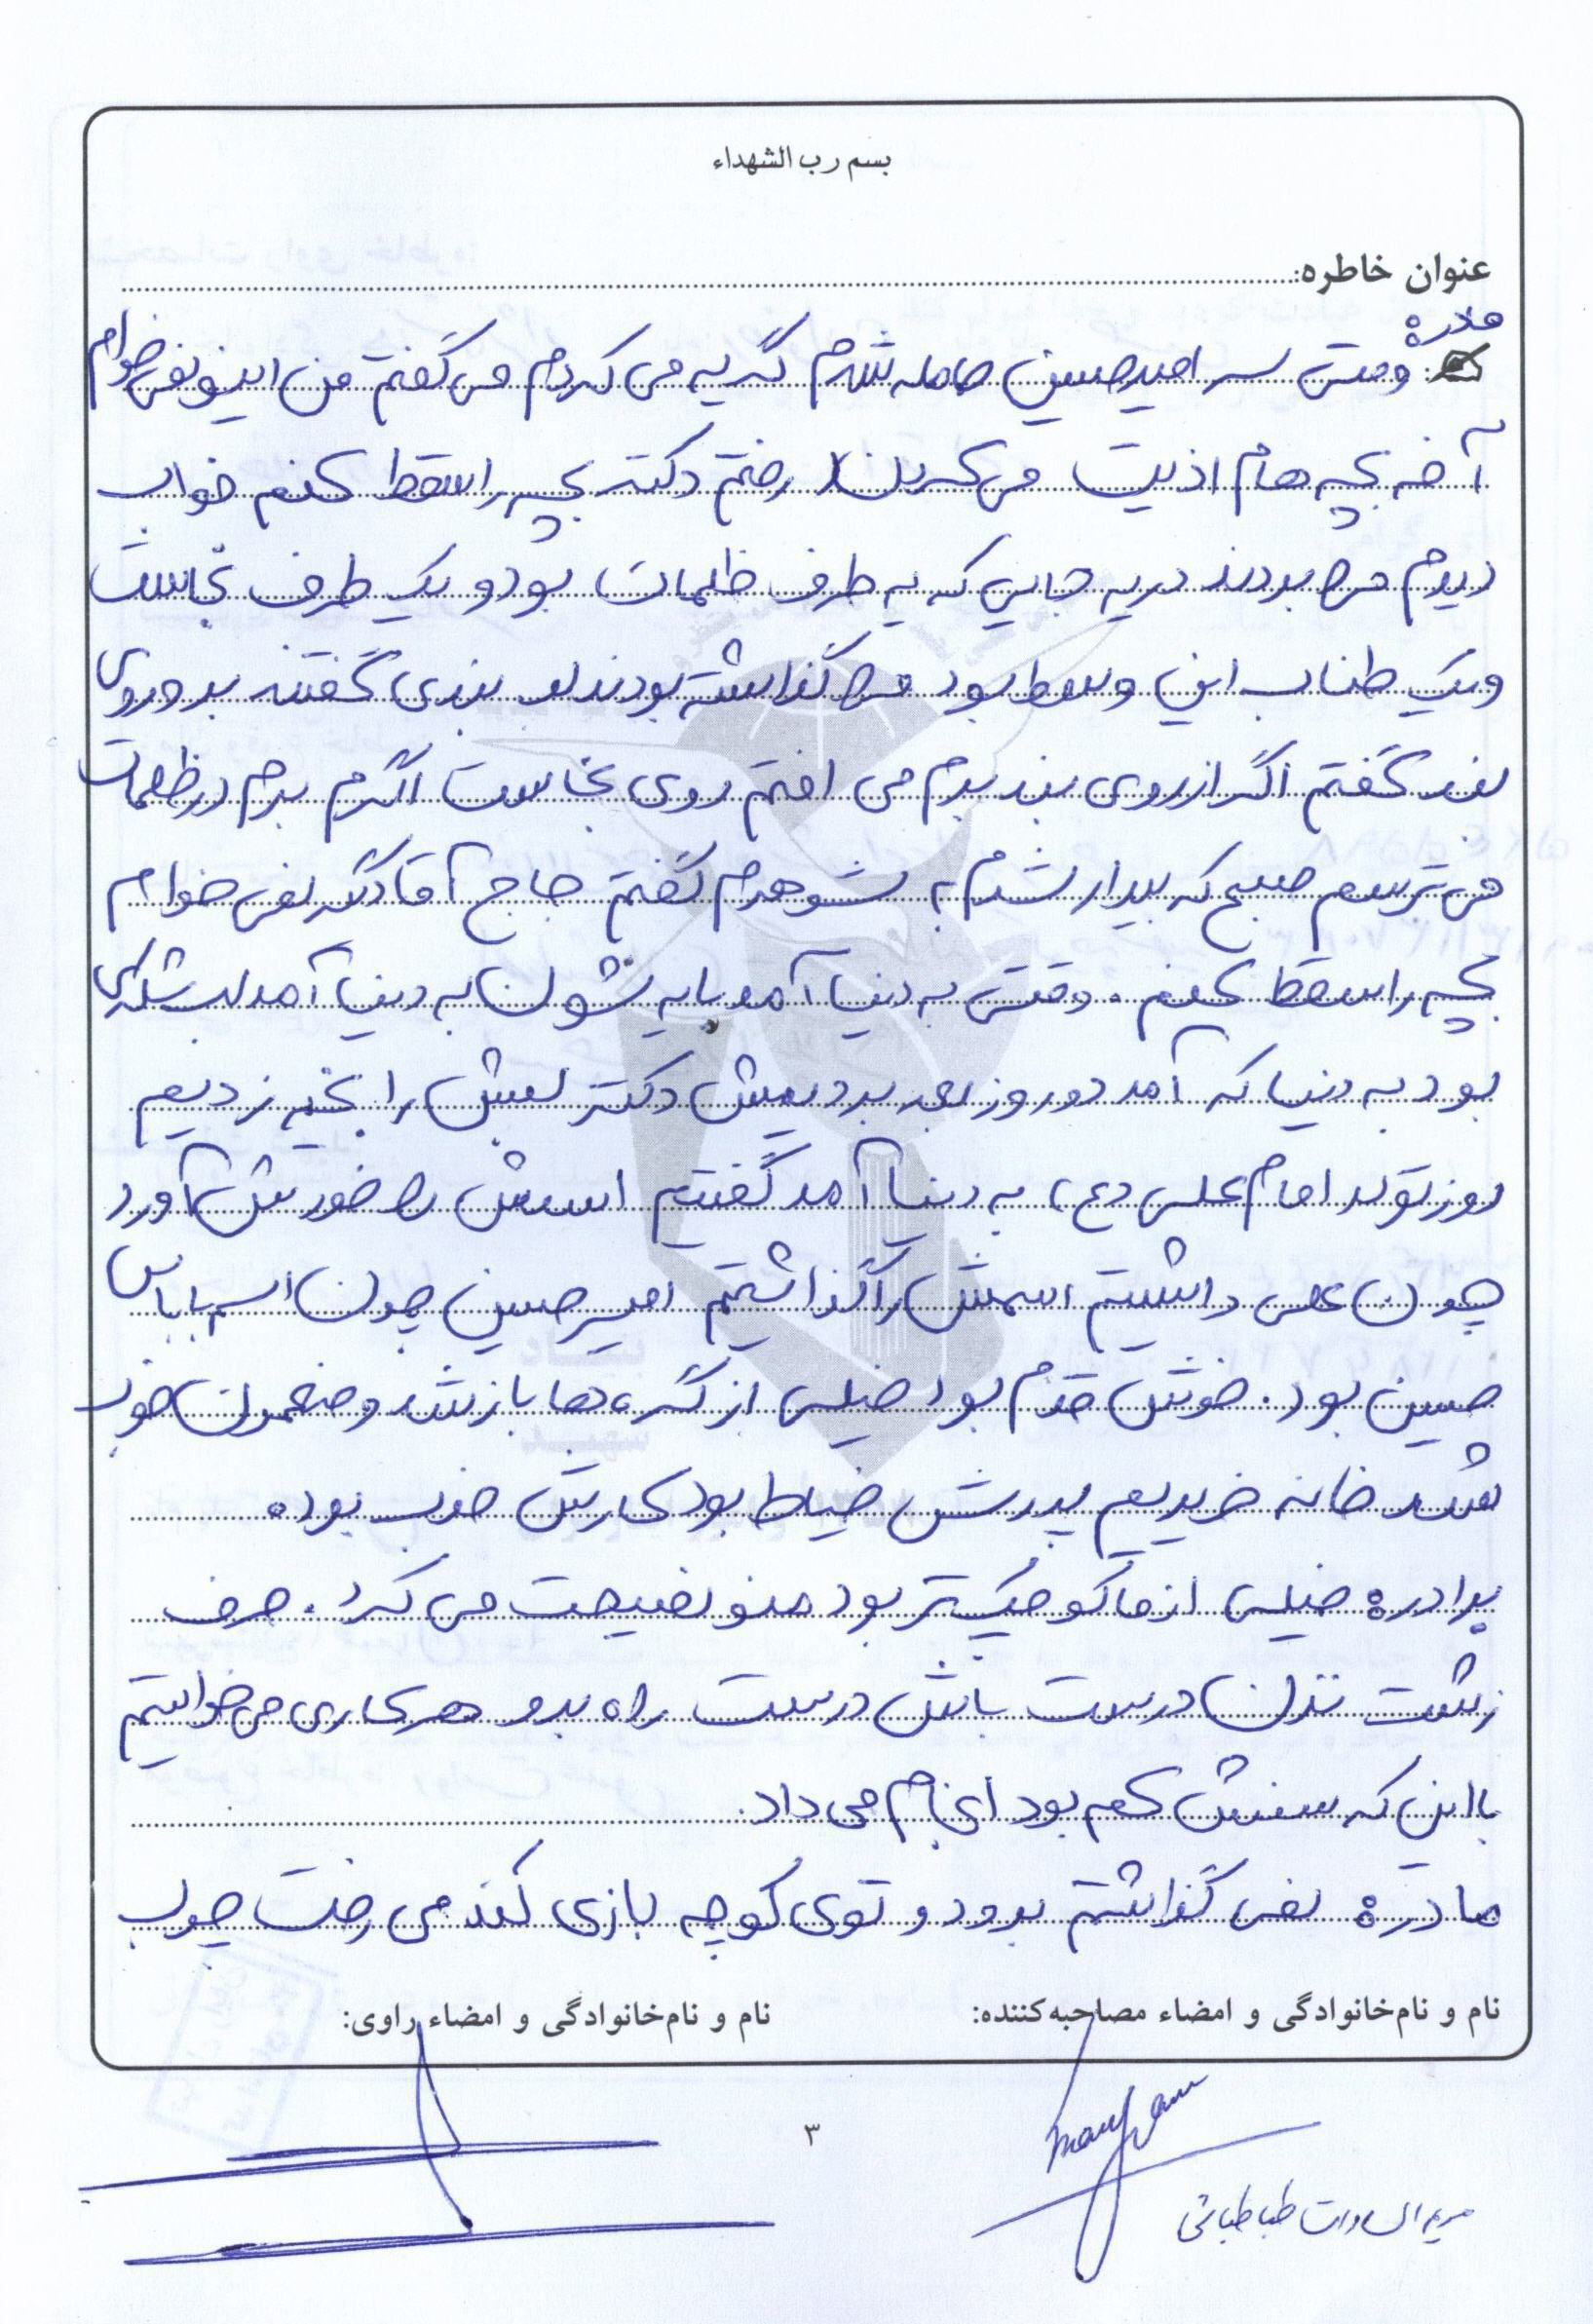 بسم رب الشهداء
عنوان خاطره:
مادره
وقتی سر امیرحسین حامله شدم گریه می کردم می گفتم من اینو نمی خوام
آخه بچه هام اذیت می کردن رفتم دکتر بچه را سقط کنم خواب
دیدم من بردند در یه جایی که یه طرف ظلمات بود و یک طرف نجاست
ویک طناب این وسط بود من گذاشته بودند لب بندی گفتند برو روی
بند گفتم اگر از روی بند برم می افتم روی نجاست اگرم برم در ظلمات
می ترسم صبح که بیدار شدم به شوهرم گفتم حاج آقا دگه نمی خوام
بچه را سقط کنم. وقتی به دنیا آمد با یه نشون به دنیا آمد لب شکری
بود به دنیا که آمد دو روز بعد بردیمش دکتر لبش را بخیه زدیم
روز تولد امام علی (ع) به دنیا آمد گفتیم اسمش را خودش آورد
چون علی داشتیم اسمش را گذاشتیم امیرحسین چون اسم باباش
حسین بود. خوش قدم بود خیلی از گره ها باز شد وضعمون خوب
شد خانه خریدیم پدرش خیاط بود کارش خوب بوده
برادره خیلی از ما کوچیک تر بود منو نصیحت می کرد. حرف
زشت نزن درست باش درست راه برو هر کاری می خواستیم
با این که سنش کم بود انجام می داد.
مادره نمی گذاشتم برود و توی کوچه بازی کند می رفت چوب
نام و نام‌خانوادگی و امضاء مصاحبه‌کننده:
نام و نام‌خانوادگی و امضاء راوی:
maryam
۳
مریم السادات طباطبائی